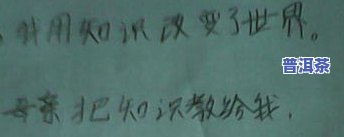 我用知识改变了世界。
普洱茶
母亲把知识教给我.